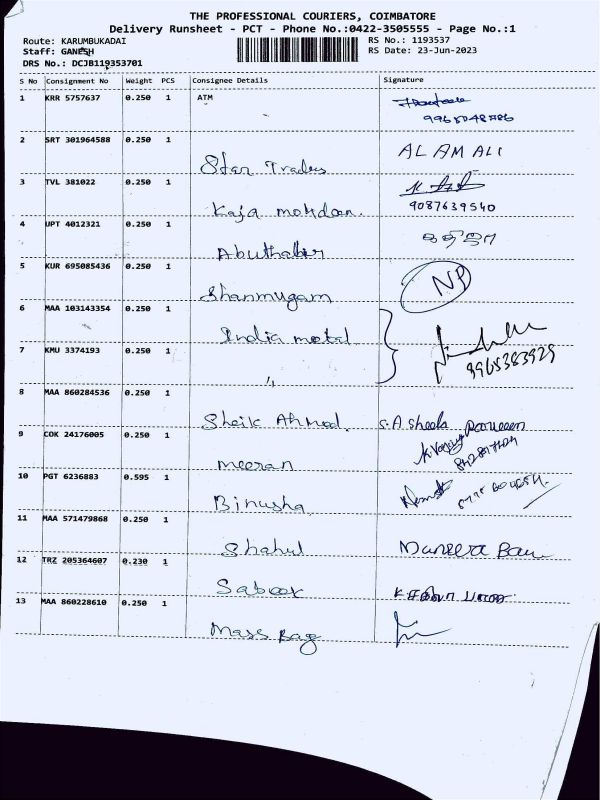 THE PROFESSIONAL COURIERS, COIMBATORE
Delivery Runsheet - PCT - Phone No.:0422-3505555 - Page No.:1
Route: KARUMBUKADAI
RS No.: 1193537
Staff: GANESH
RS Date: 23-Jun-2023
DRS No.: DCJB119353701
S No Consignment No Weight PCS Consignee Details Signature
1 KRR 5757637 0.250 1 ATM
2 SRT 301964588 0.250 1
Star Traders
AL AM ALI
3 TVL 381022 0.250 1
Kaja mohdeen.
9087639540
4 UPT 4012321 0.250 1
Abuthahir
5 KUR 695085436 0.250 1
Shanmugam
NP
6 MAA 103143354 0.250 1
India metal
7 KMU 3374193 0.250 1
9965383929
"
8 MAA 860284536 0.250 1
Sheik Ahmed.
S.A sheela
9 COK 24176005 0.250 1
meeran
10 PGT 6236883 0.595 1
Binusha
11 MAA 571479868 0.250 1
Shahul
12 TRZ 205364607 0.230 1
Saboor
13 MAA 860228610 0.250 1
Mass Bag